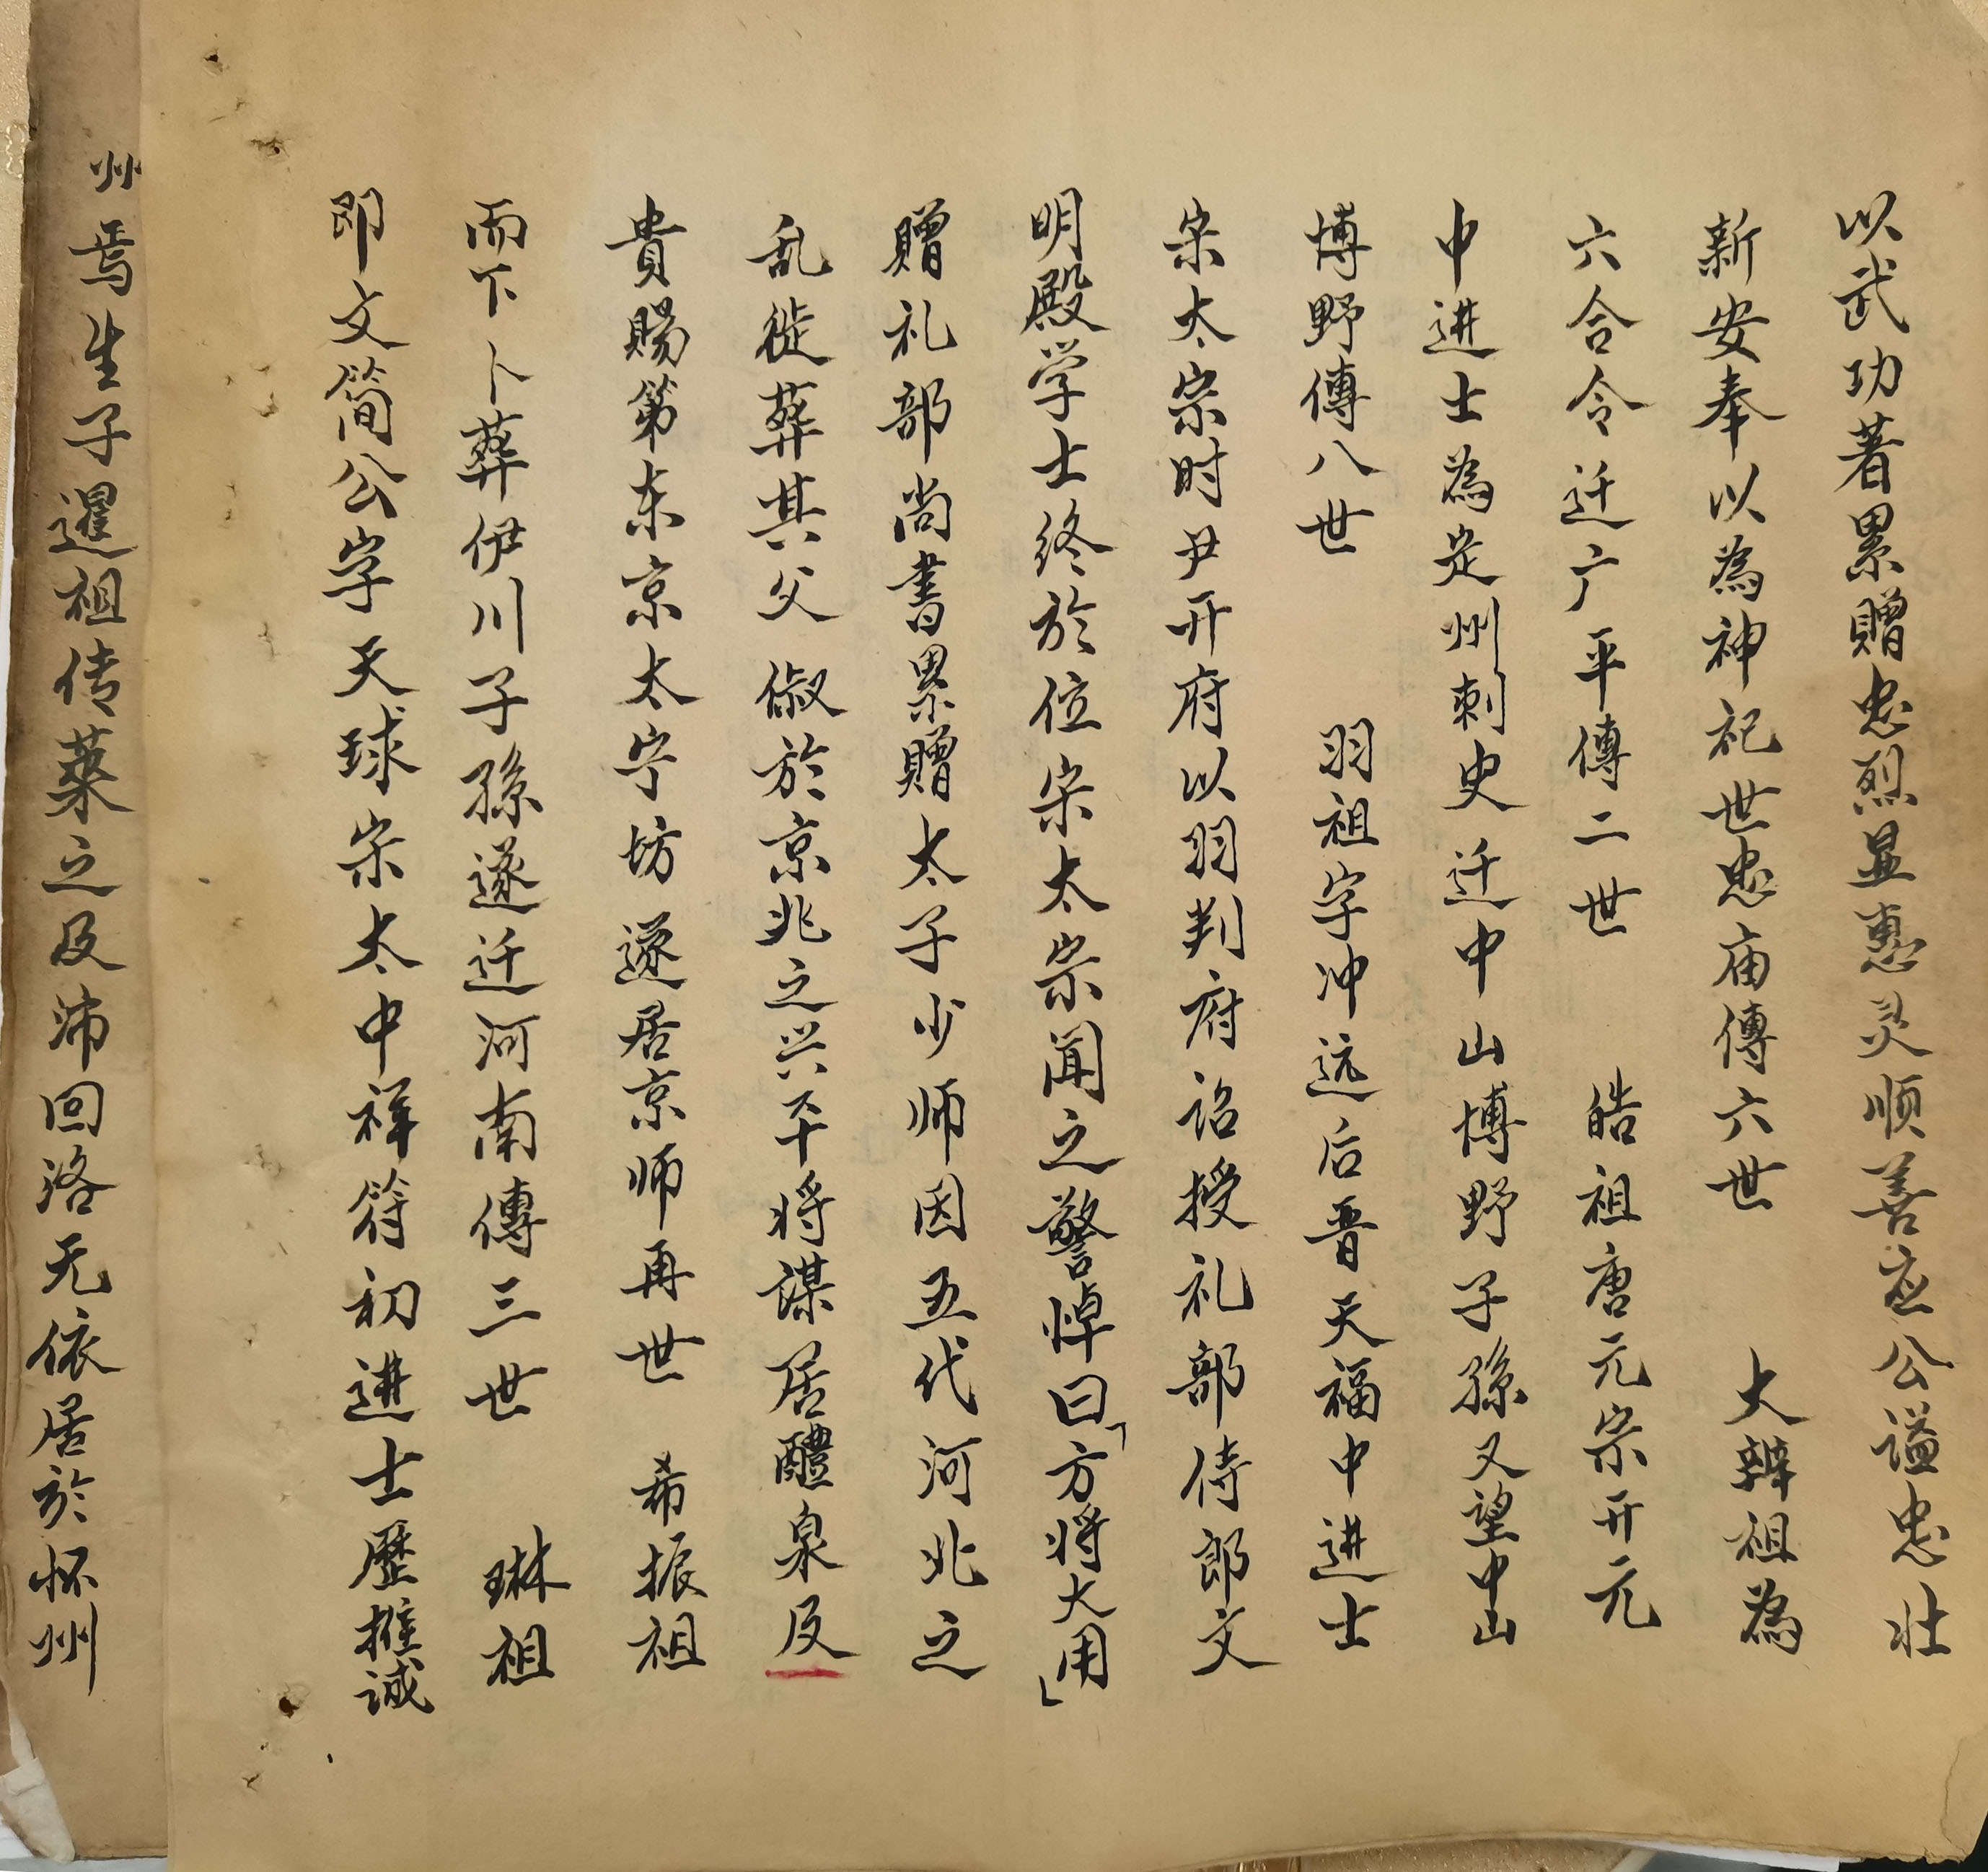 以武功著累赠忠烈显惠灵顺善应公谥忠壮
新安奉以為神祀世忠庙傳六世 大辩祖為
六合令迁广平傳二世 皓祖唐元宗开元
中进士為定州刺史迁中山博野子孫又望中山
博野傳八世 羽祖字冲远后晋天福中进士
宋太宗时尹开府以羽判府诏授礼部侍郎文
明殿学士终於位宋太宗闻之警悼曰「方将大用」
赠礼部尚書累赠太子少师因五代河北之
乱徙葬其父俶於京兆之兴平将谋居醴泉及
貴赐第东京太宁坊遂居京师再世 希振祖
而下卜葬伊川子孫遂迁河南傳三世 琳祖
即文简公字天球宋太中祥符初进士歷推诚
州焉生子暹祖传蕖之及沛回洛无依居於怀州